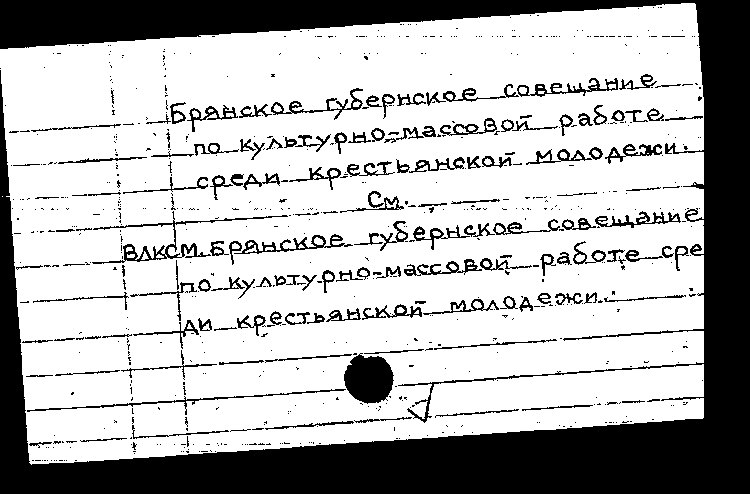 Брянское губернское совещание
по культурно-массовой работе
среди крестьянской молодежи.
См.
ВЛКСМ. Брянское губернское совещание
по культурно-массовой работе сре
ди крестьянской молодежи.